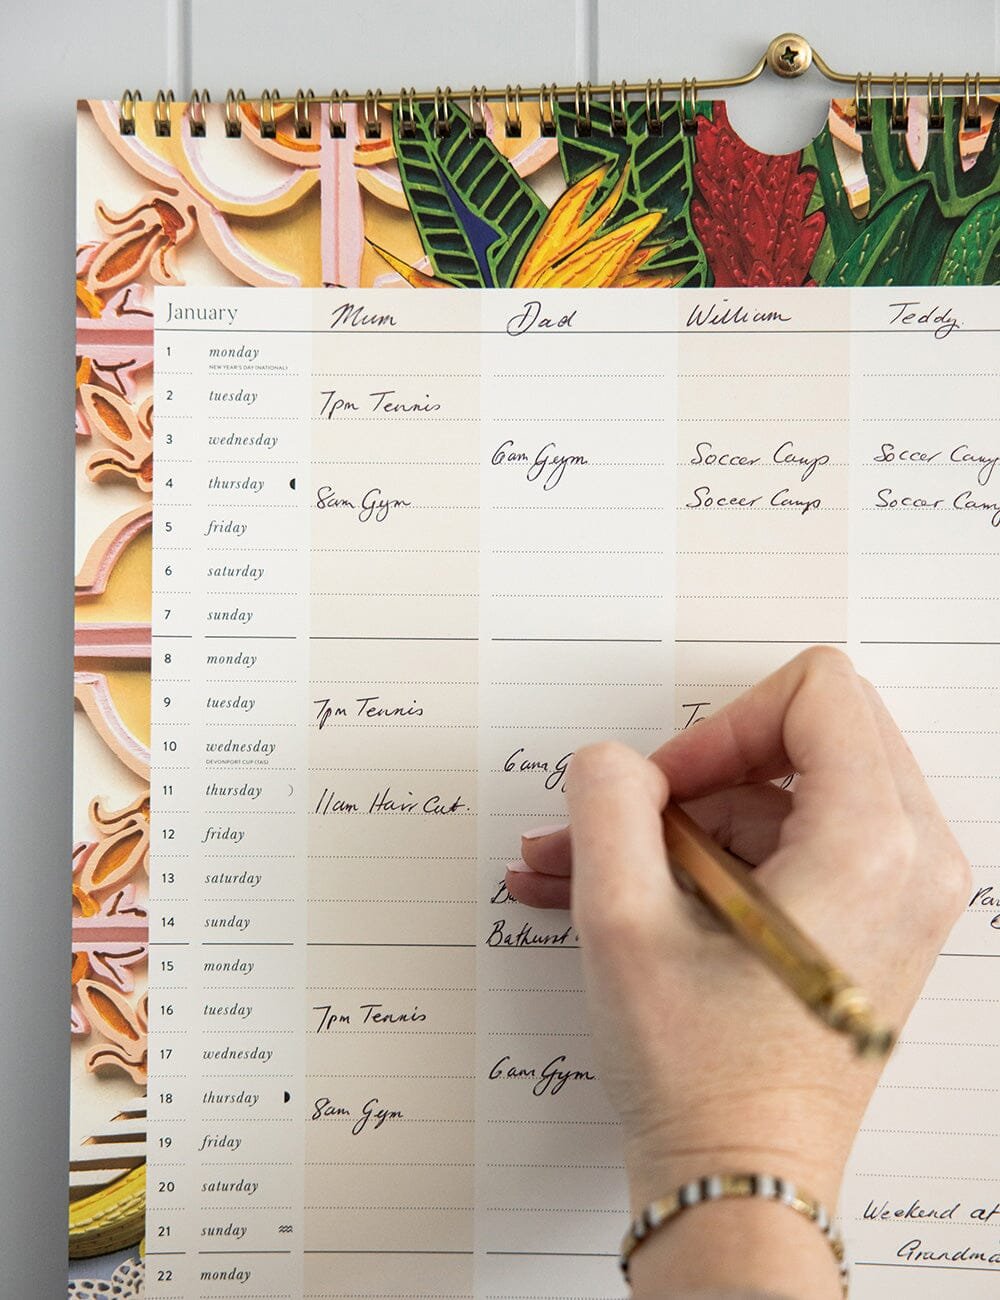 January Mum Dad William Teddy.
1 monday
NEW YEAR'S DAY (NATIONAL)
2 tuesday 7pm Tennis
3 wednesday 6am Gym Soccer Camp Soccer Camp
4 thursday 8am Gym Soccer Camp Soccer Camp
5 friday
6 saturday
7 sunday
8 monday
9 tuesday 7pm Tennis
10 wednesday 6am
DEVONPORT CUP (TAS)
11 thursday 11am Hair Cut.
12 friday
13 saturday
14 sunday Bathurst
15 monday
16 tuesday 7pm Tennis
17 wednesday 6am Gym
18 thursday 8am Gym
19 friday
20 saturday
21 sunday Weekend at
Grandma
22 monday